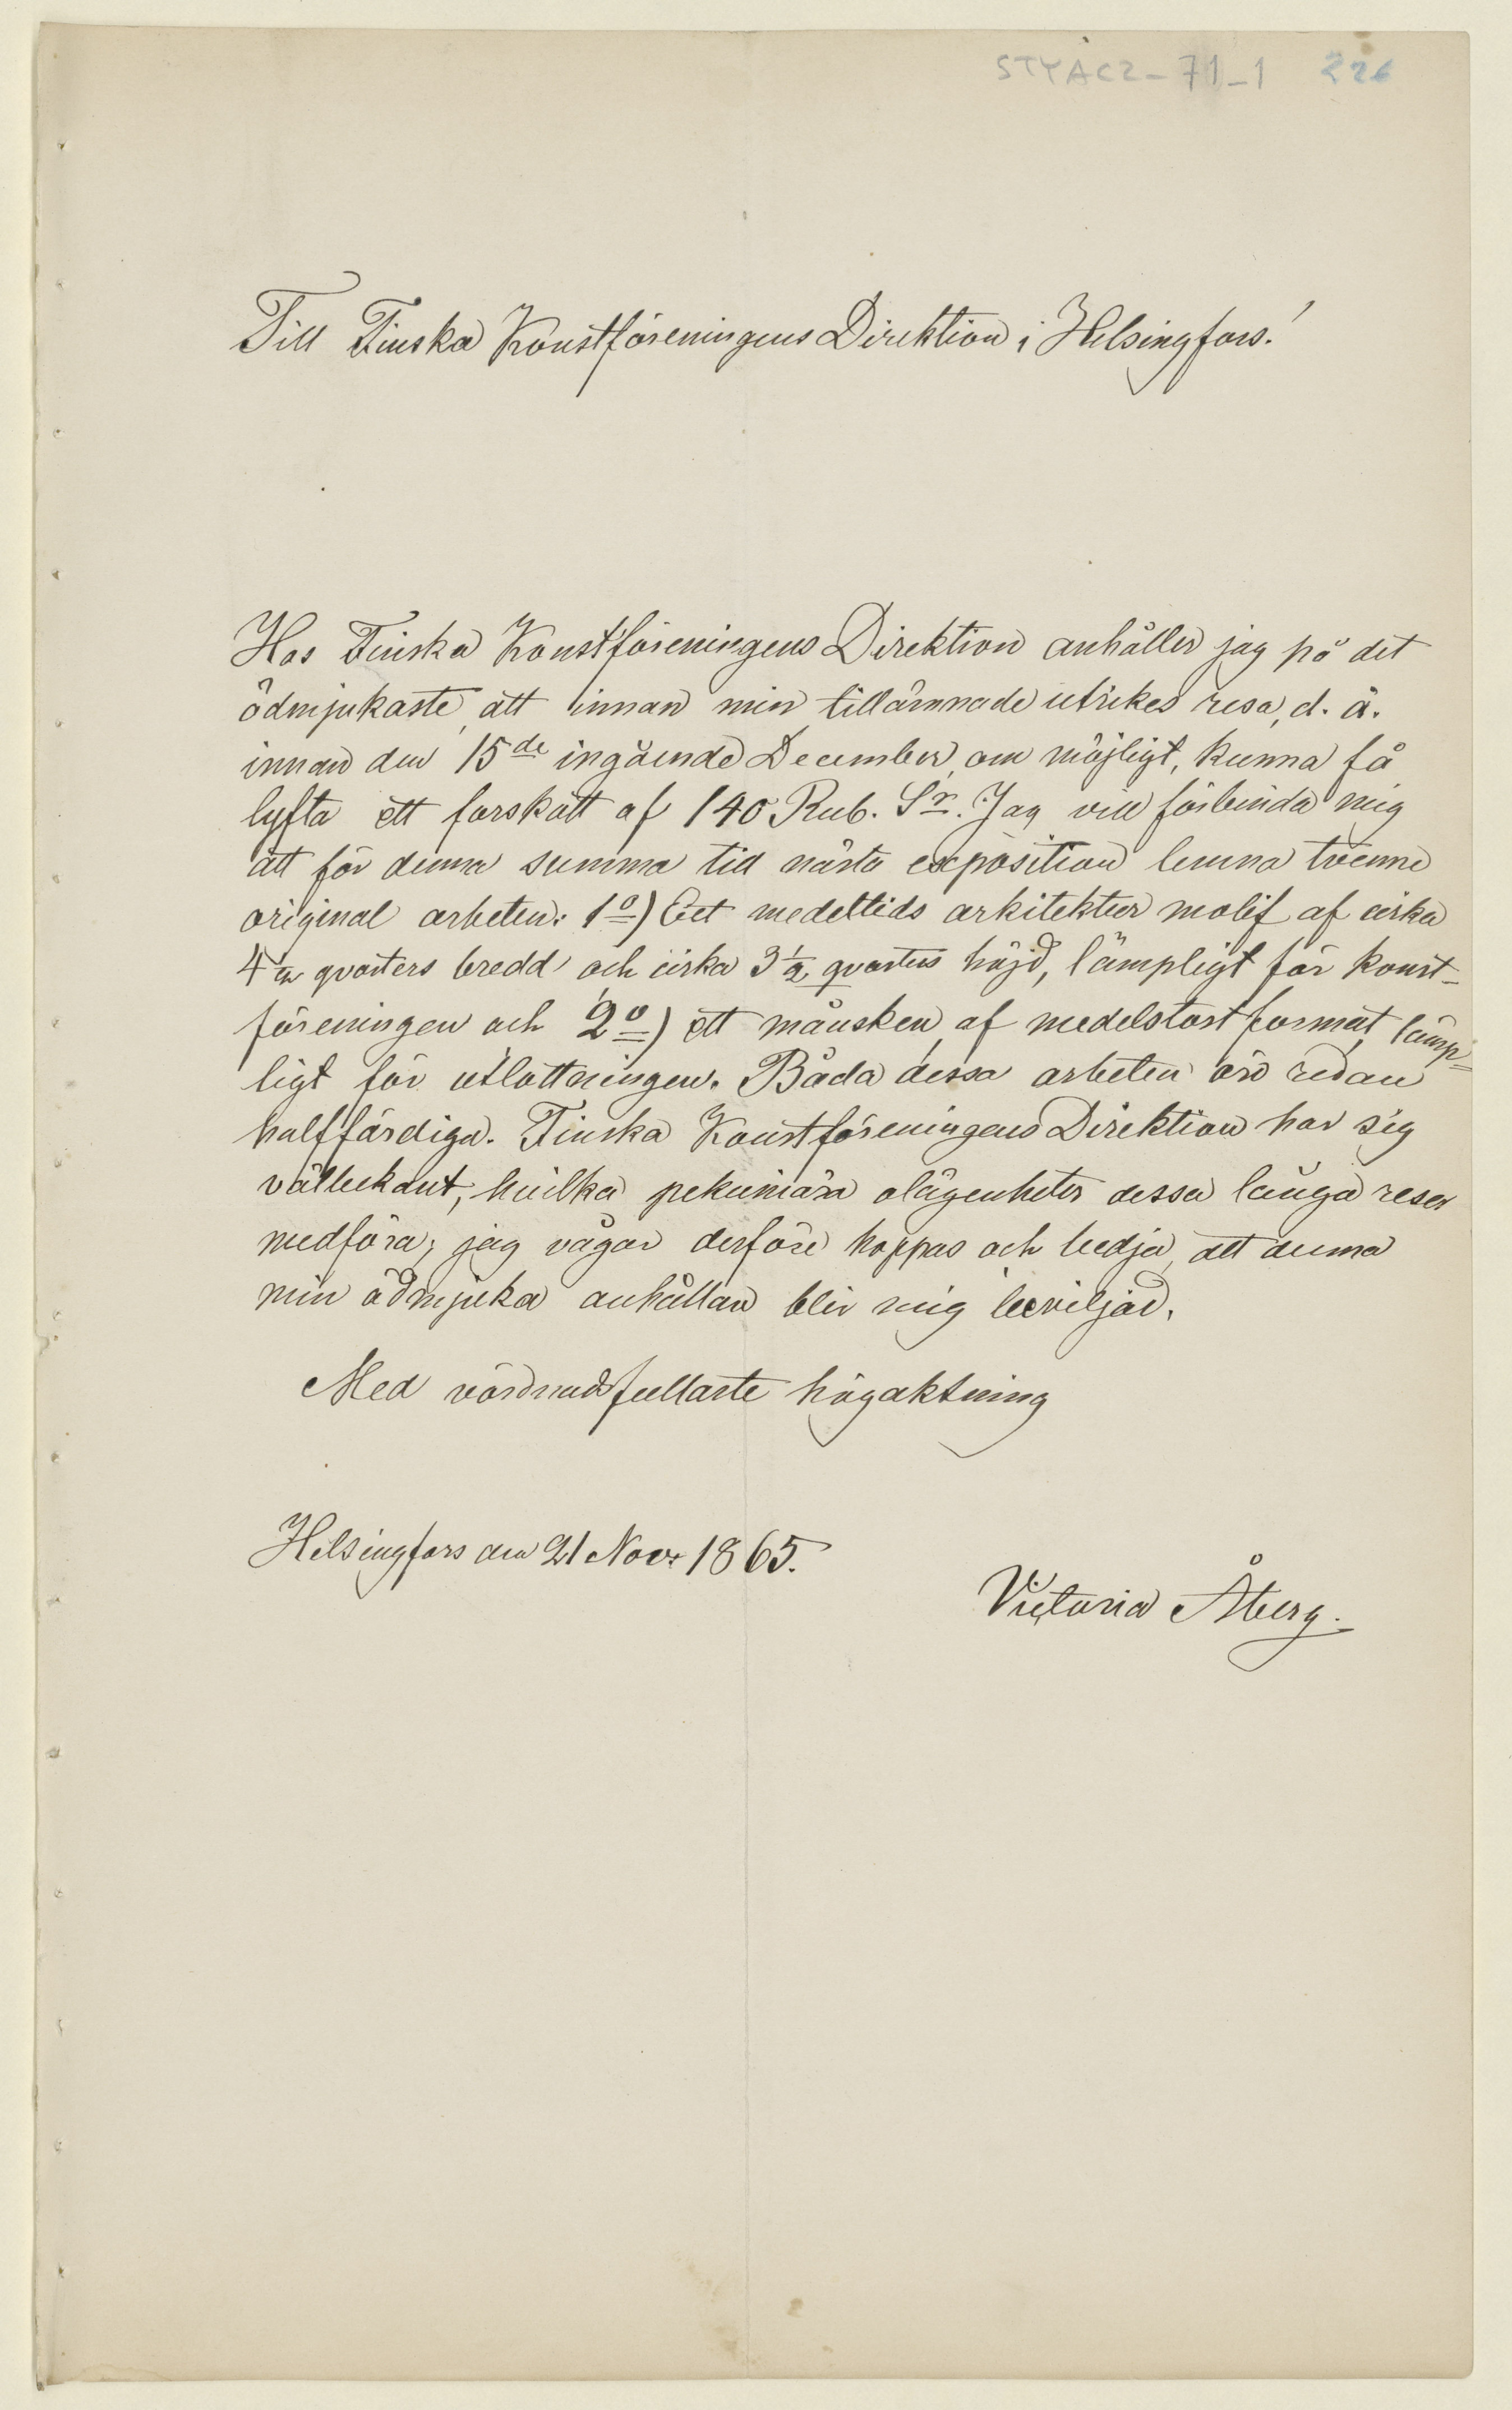 STYAC2-71-1 226
Till Finska Konstföreningens Direktion i Helsingfors!
Hos Finska Konstföreningens Direktion anhåller jag på det
ödmjukaste, att innan min tillämnade utrikes resa, d. ä.
innan den 15de ingående December, om möjligt, kunna få
lyfta ett forskott af 140 Rub. Sr. Jag vill förbinda mig
att för denna summa till nästa exposition lemna tvenne
original arbeten: 1o) Ett medeltids arkitektur motif af cirka
4 1/2 qvarters bredd och cirka 3 1/2 qvarters höjd, lämpligt för konst-
föreningen och 2o) ett månsken, af medelstort format, lämp-
ligt för utlottningen. Båda dessa arbeten äro redan
halffärdiga. Finska Konstföreningens Direktion har sig
välbekant, hvilka pekuniära olägenheter dessa långa resor
medföra; jag vågar derföre hoppas och bedja, att denna
min ödmjuka anhållan blir mig beviljad.
Med vördnadsfullaste högaktning
Helsingfors den 21 Nov. 1865.
Victoria Åberg.